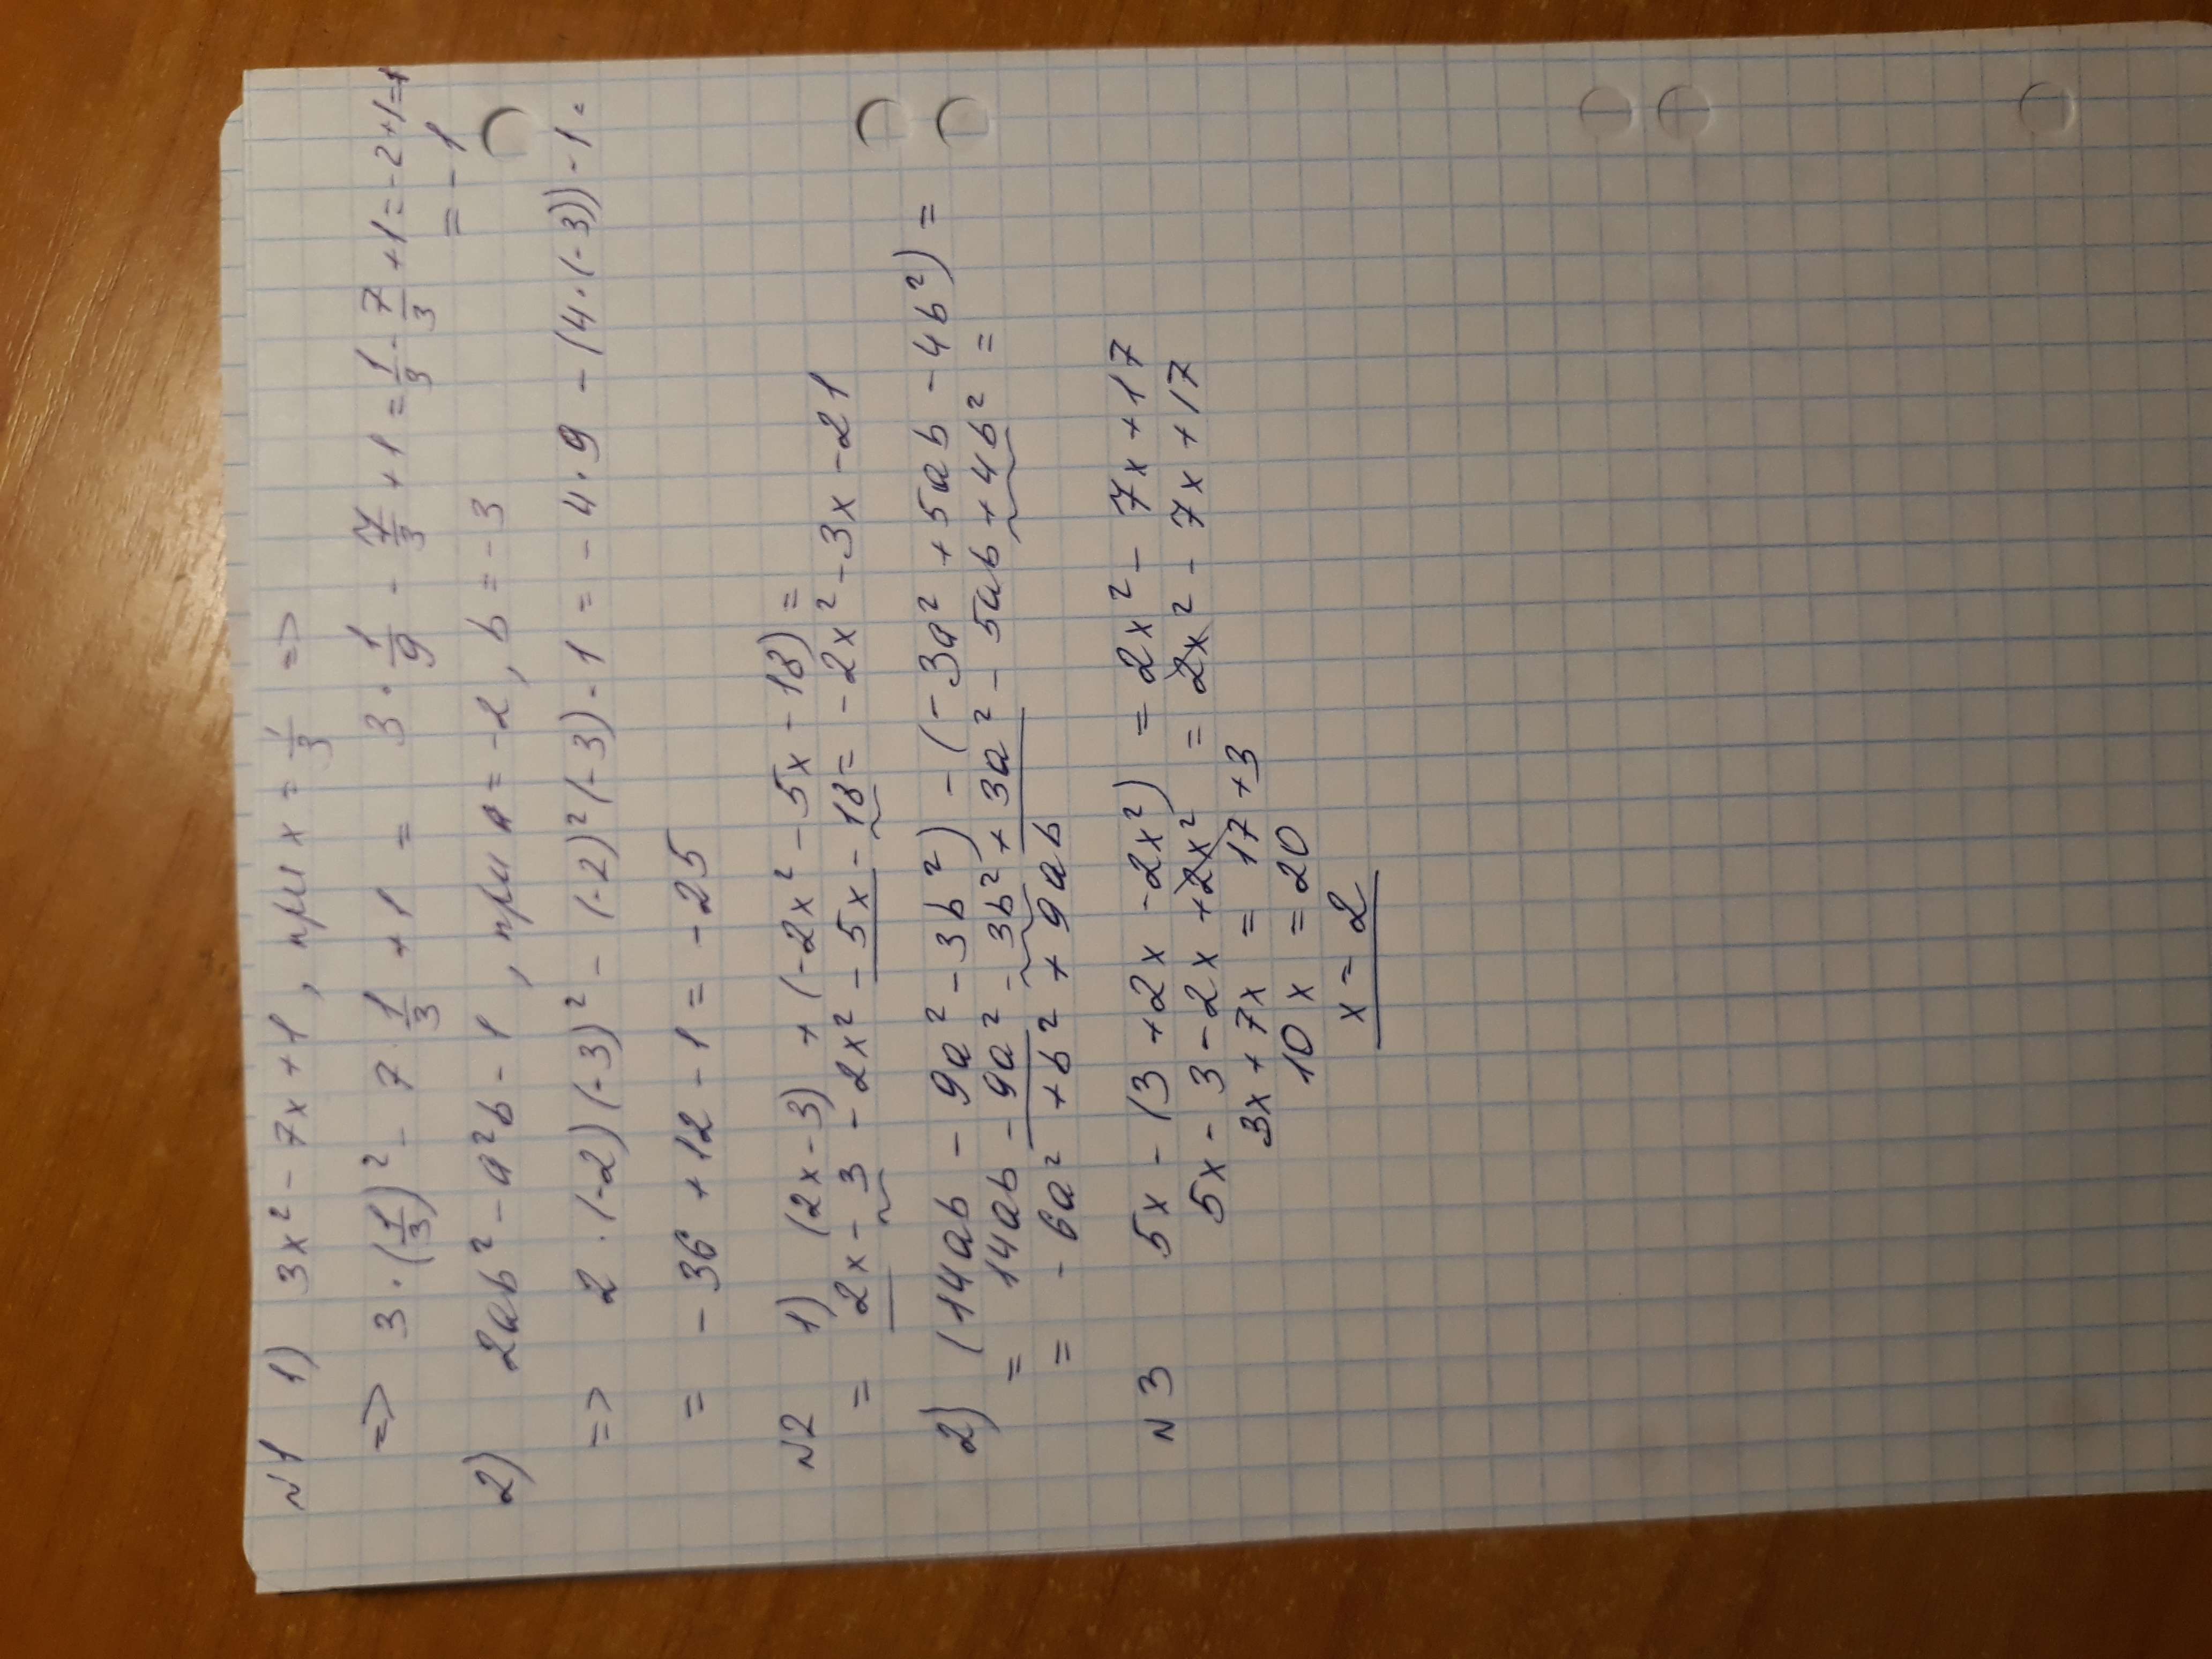 N1 1) 3x² - 7x + 1, при x = 1/3 =>
=> 3·(1/3)² - 7·1/3 + 1 = 3·1/9 - 7/3 + 1 = 1/3 - 7/3 + 1 = -2+1=
= -1
2) 2ab² - a²b - 1, при a = -2, b = -3
=> 2·(-2)(-3)² - (-2)²(-3) - 1 = -4·9 - (4·(-3)) - 1 =
= -36 + 12 - 1 = -25
N2 1) (2x - 3) + (-2x² - 5x - 18) =
= 2x - 3 - 2x² - 5x - 18 = -2x² - 3x - 21
2) (14ab - 9a² - 3b²) - (-3a² + 5ab - 4b²) =
= 14ab - 9a² - 3b² + 3a² - 5ab + 4b² =
= -6a² + b² + 9ab
N3 5x - (3 + 2x - 2x²) = 2x² - 7x + 17
5x - 3 - 2x + 2x² = 2x² - 7x + 17
3x + 7x = 17 + 3
10x = 20
x = 2